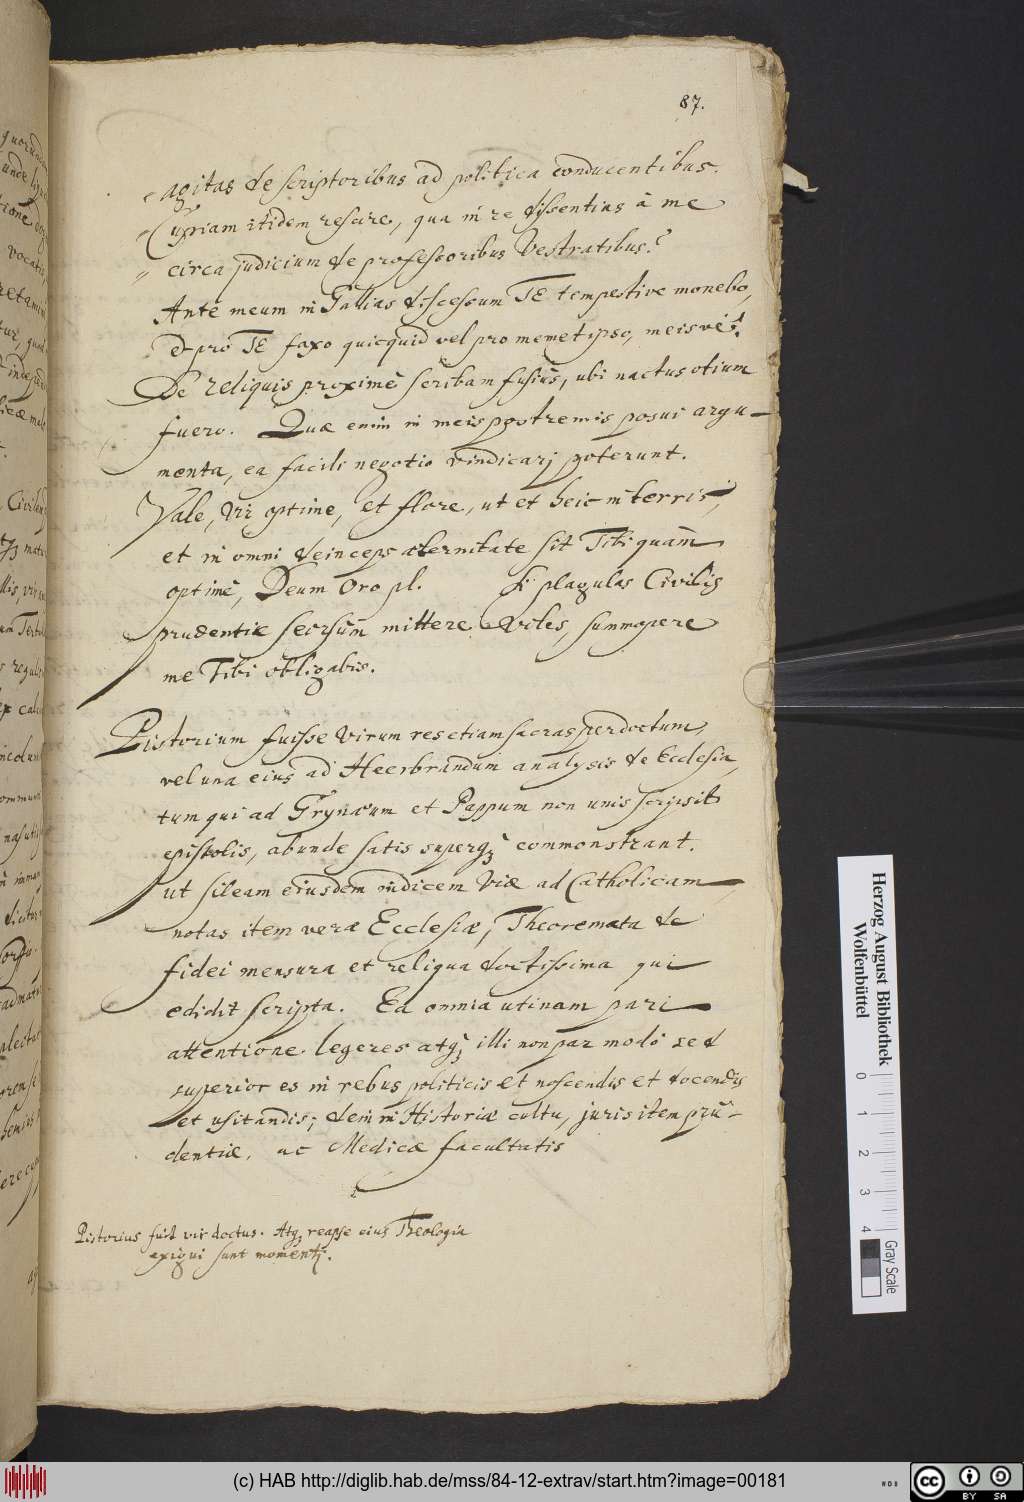 87.
agitas de scriptoribus ad politica conducentibus.
Cupiam itidem rescire, qua in re dissentias à me
circa judicium de professoribus Vestratibus?
Ante meum in Gallias discessum TE tempestive monebo,
& pro TE faxo quicquid vel pro memet ipso, meisve.
De reliquis proximè scribam fusiùs, ubi nactus otium
fuero. Quæ enim in meis postremis posui argu-
menta, ea facili negotio vindicarj poterunt.
Vale, Vir optime, et flore, ut et heic in terris,
et in omni deinceps æternitate sit Tibi quàm
optimè, Deum Oro pl. Si plagulas Civilis
prudentiæ seorsùm mittere Voles, summopere
me Tibi obligabis.
Pistorium fuisse virum res etiam sacras perdoctum,
vel una eius ad Heerbrandum analysis de Ecclesia,
tum qui ad Grynæum et Pappum non unis scripsit
epistolis, abunde satis superq; commonstrant.
ut sileam eiusdem indicem Viæ ad Catholicam
notas item veræ Ecclesiæ, Theoremata de
fidei mensura et reliqua doctissima qui
edidit scripta. Ea omnia utinam pari
attentione legeres atq; illi non par modò sed
superior es in rebus politicis et noscendis et docendis
et usitandis; dein in Historiæ cultu, juris item pru-
dentiæ, ac Medicæ facultatis
Pistorius fuit vir doctus. Atq; reapse eius Theologia
exigui sunt momentj.
Herzog August Bibliothek
Wolfenbüttel
0 1 2 3 4
Gray Scale
(c) HAB http://diglib.hab.de/mss/84-12-extrav/start.htm?image=00181
WDB
cc BY SA